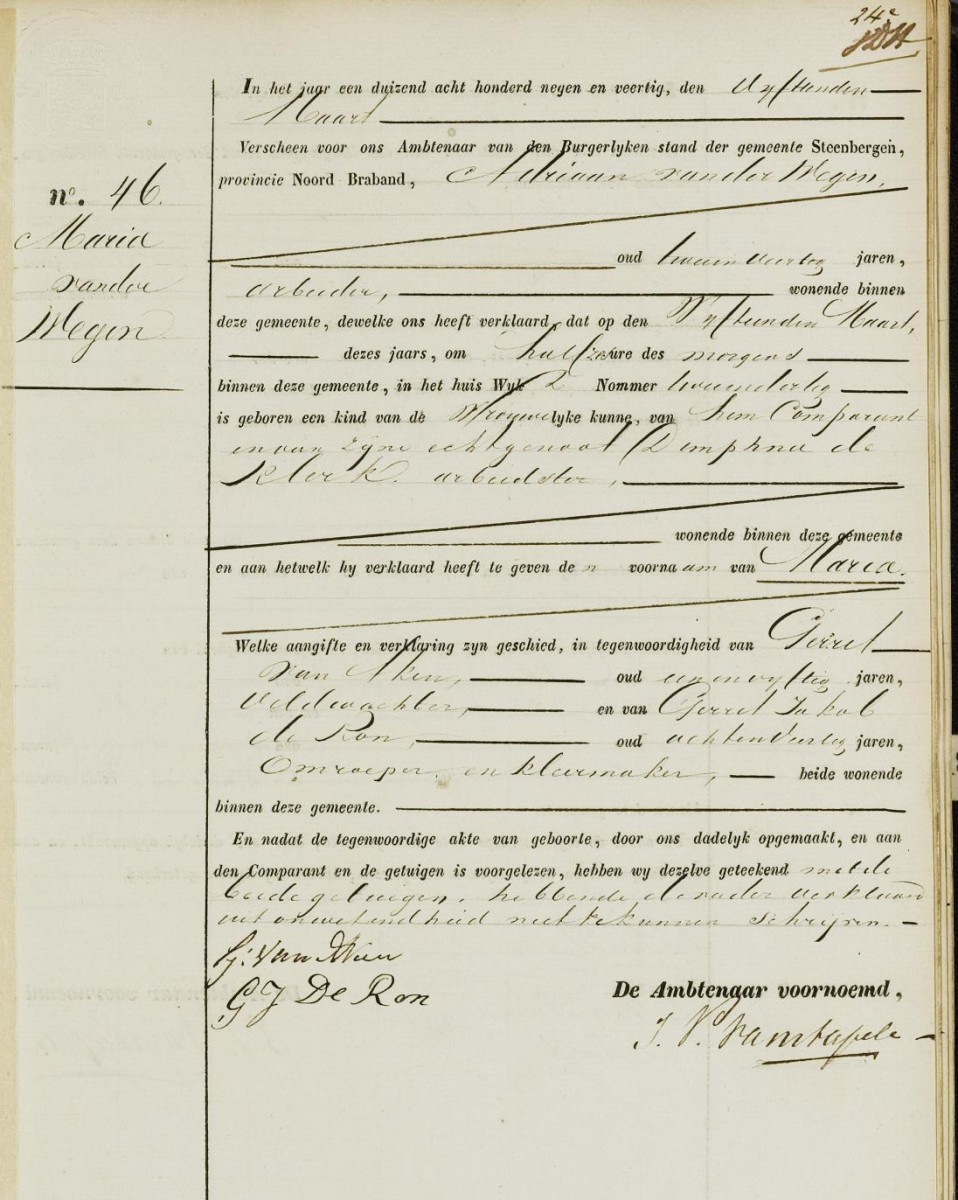 24e
In het jaar een duizend acht honderd negen en veertig, den Vyftienden
Maart
Verscheen voor ons Ambtenaar van den Burgerlyken stand der gemeente Steenbergen,
provincie Noord Braband, Adriaan van der Wegen,
no. 46.
Maria
vander
Wegen
oud tweeenveertig jaren,
arbeider, wonende binnen
deze gemeente, dewelke ons heeft verklaard, dat op den Vyftienden Maart,
dezes jaars, om half zes ure des morgens
binnen deze gemeente, in het huis Wyk 2 Nommer tweendertig
is geboren een kind van de Vrouwelyke kunne, van hem Comparant
en van zyne echtgenoot Dimphna de
Klerk arbeidster,
wonende binnen deze gemeente
en aan hetwelk hy verklaard heeft te geven den voornaam van Maria.
Welke aangifte en verklaring zyn geschied, in tegenwoordigheid van Gerret
van Aken, oud eenenvyftig jaren,
Veldwachter, en van Gerret Jakob
de Ron, oud achtenveertig jaren,
Omroeper en kleermaker, beide wonende
binnen deze gemeente.
En nadat de tegenwoordige akte van geboorte, door ons dadelyk opgemaakt, en aan
den Comparant en de getuigen is voorgelezen, hebben wy dezelve geteekend met de
beide getuigen, hebbende de vader verklaard
uit onwetendheid niet te kunnen schryven.
G: Van Aken
G J De Ron
De Ambtenaar voornoemd,
J. V.